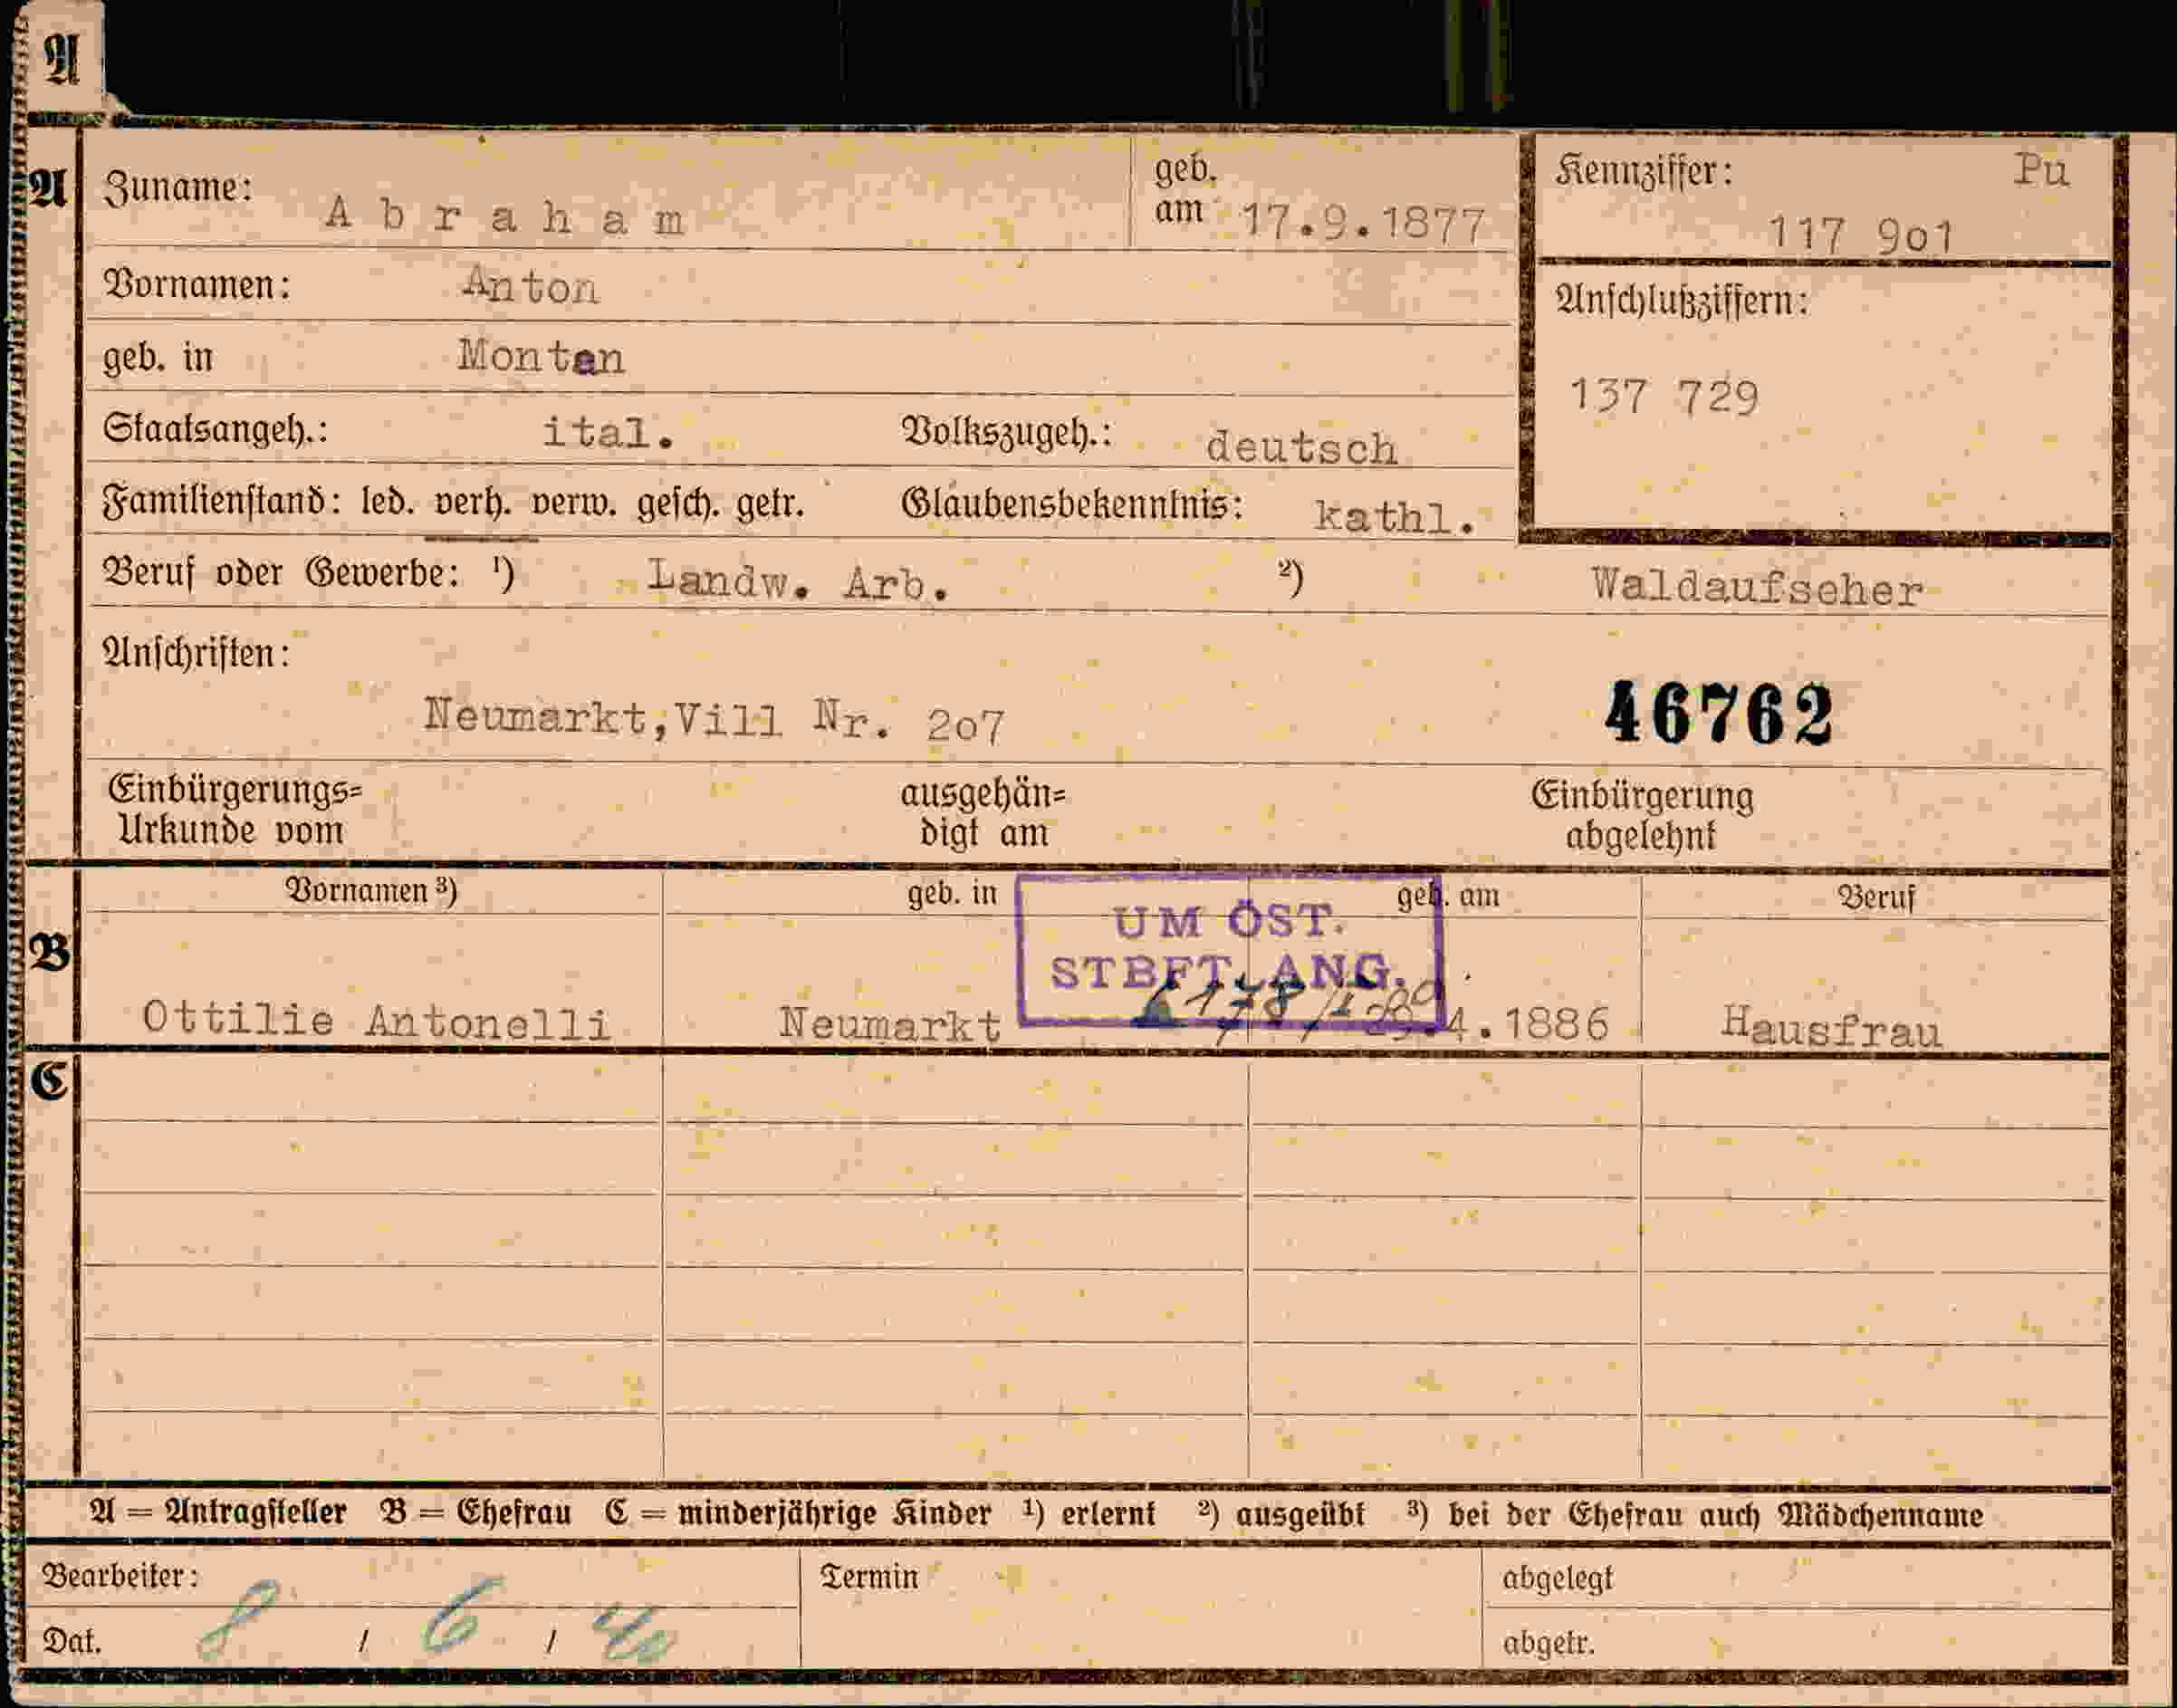 A
A
Zuname: Abraham geb. am 17.9.1877
Kennziffer: Pu
117 9o1
Vornamen: Anton
Anschlußziffern:
geb. in Montan
137 729
Staatsangeh.: ital. Volkszugeh.: deutsch
Familienstand: led. verh. verw. gesch. getr. Glaubensbekenntnis: kathl.
Beruf oder Gewerbe: ¹) Landw. Arb. ²) Waldaufseher
Anschriften:
Neumarkt,Vill Nr. 2o7
46762
Einbürgerungs=
Urkunde vom
ausgehän=
digt am
Einbürgerung
abgelehnt
B
Vornamen ³) geb. in geb. am Beruf
UM ÖST.
STBFT. ANG.
Ottilie Antonelli Neumarkt 4.1886 Hausfrau
C
A = Antragsteller B = Ehefrau C = minderjährige Kinder ¹) erlernt ²) ausgeübt ³) bei der Ehefrau auch Mädchenname
Bearbeiter: Termin abgelegt
Dat. 8 / 6 / 40 abgetr.